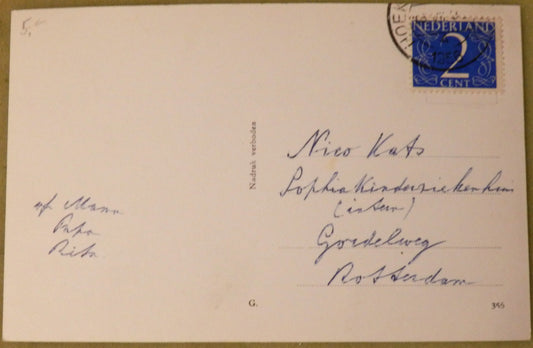 5,-
HOEK
NEDERLAND
2
CENT
Nadruk verboden
Nico Kats
Sophia Kinderziekenhuis
(intern)
Gordelweg
Rotterdam
Mama
Papa
Rita
G.
355